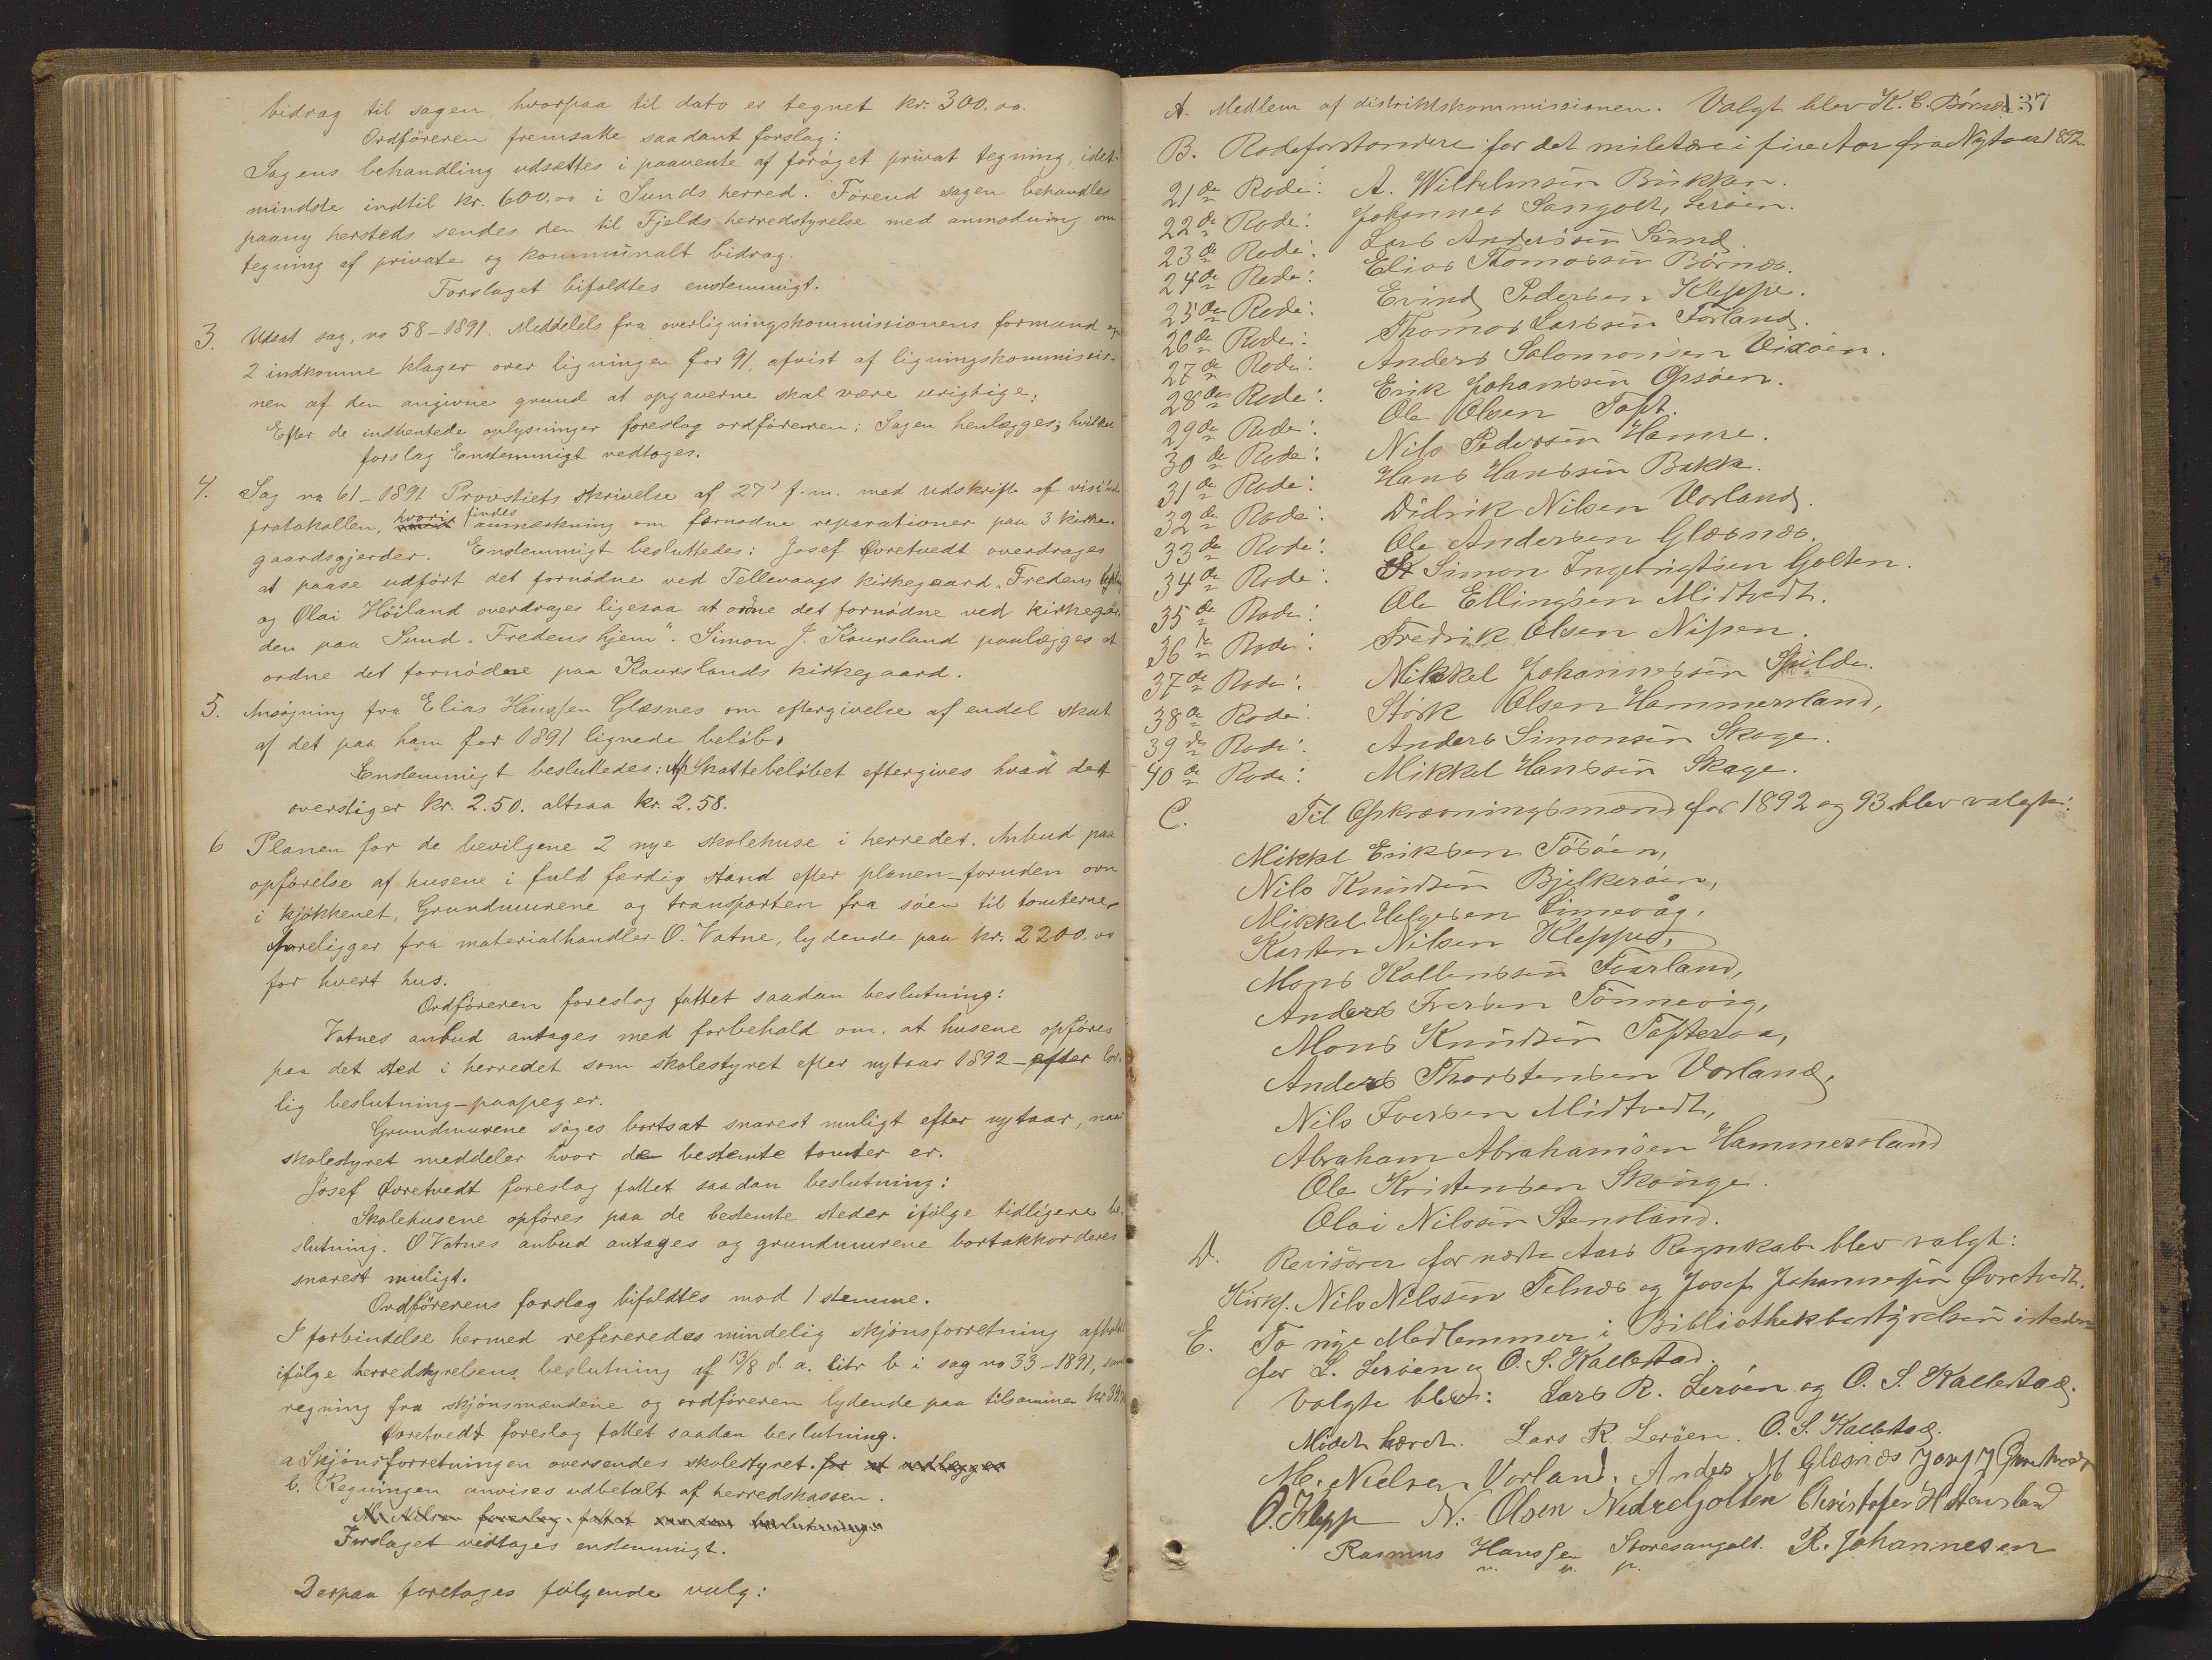 bidrag til sagen, hvorpaa til dato er tegnet kr. 300.00.
Ordföreren fremsatte saadant forslag:
Sagens behandling udsættes i paavente af foröget privat tegning, idet
mindste indtil kr. 600,00 i Sunds herred. Förend sagen behandles
paany hersteds sendes den til Fjelds herredstyrelse med anmodning om
tegning af private og kommunalt bidrag.
Forslaget bifaldtes enstemmigt.
3. Udsat sag, no 58-1891. Meddelels fra overligningskommissionens formand
2 indkomne klager over ligningen for 91, afvist af ligningskommissio-
nen af den angivne grund at opgaverne skal være urigtige:
Efter de indhentede oplysninger foreslog ordföreren: Sagen henlægges; hvilket
forslag Enstemmigt vedtoges.
4. Sag no 61-1891. Provstiets skrivelse af 27' f.m. med udskrift af
protokollen, hvori findes anmærkning om fornødne reparationer paa 3 kirke-
gaardsgjerder. Enstemmigt besluttedes: Josef Øvretvedt overdrages
at paase udført det fornødne ved Tellevaags kirkegaard "Fredens
og Olai Höiland overdrages ligesaa at ordne det fornødne ved kirkegaar-
den paa Sund "Fredens hjem". Simon J. Kaursland paalægges at
ordne det fornødne paa Kaurslands kirkegaard.
5. Ansøgning fra Elias Hanssen Glæsnes om eftergivelse af endel skat
af det paa ham for 1891 lignede beløb.
Enstemmigt besluttedes: Af Skattebeløbet eftergives hvad det
overstiger kr. 2.50. altsaa kr. 2.58.
6 Planen for de bevilgene 2 nye skolehuse i herredet. Anbud paa
opførelse af husene i fuld færdig stand efter planen - foruden ovn
i kjøkkenet, Grundmurene og transporten fra søen til tomterne,
foreligger fra materialhandler O. Vatne, lydende paa kr. 2200.00
for hvert hus.
Ordføreren foreslog fattet saadan beslutning:
Vatnes anbud antages med forbehold om, at husene opføres
paa det sted i herredet som skolestyret efter nytaar 1892 - efter lov-
lig beslutning - paapeger.
Grundmurene søges bortsat snarest muligt efter nytaar, naar
skolestyret meddeler hvor de bestemte tomter er.
Josef Øvretvedt foreslog fattet saadan beslutning:
Skolehusene opføres paa de bestemte steder ifølge tidligere be-
slutning. O Vatnes anbud antages og grundmurene bortakkorderes
snarest muligt.
Ordførerens forslag bifaldtes mod 1 stemme.
I forbindelse hermed refereredes mindelig skjønsforretning afholdt
ifølge herredstyrelsens beslutning af 13/8 d. a. litr b i sag no 33-1891, samt
regning fra skjønsmændene og ordføreren lydende paa tilsammen kr
Øvretvedt foreslog fattet saadan beslutning.
a Skjønsforretningen oversendes skolestyret. for at vedlægges
b. Regningen anvises udbetalt af herredskassen.
N. Nilsen foreslog fattet saadan beslutning:
Forslaget vedtages enstemmigt.
Derpaa foretages følgende valg:
137
A. Medlem af distriktskommissionen. Valgt blev K. E. Børnæs
B. Rodeforstandere for det militære i fire Aar fra Nytaar 1892.
21de Rode: A. Wilhelmsen Bukken.
22de Rode: Johannes Sangolt, Lerøen.
23de Rode: Lars Anderssen Sund.
24de Rode: Elias Thomassen Børnæs.
25de Rode: Erind Pedersen Kleppe.
26de Rode: Thomas Larssen Forland.
27de Rode: Anders Salomonsen Vixøen.
28de Rode: Erik Johanssen Opsøen.
29de Rode: Ole Olsen Toft.
30de Rode: Nils Pedersen Hamre.
31de Rode: Hans Hanssen Bakk.
32de Rode: Didrik Nilsen Vorland.
33de Rode: Ole Andersen Glæsnæs.
34de Rode: Simon Ingebrigtsen Golten.
35de Rode: Ole Ellingsen Midtvedt.
36te Rode: Fredrik Olsen Nipen.
37de Rode: Mikkel Johannessen Spilde.
38de Rode: Størk Olsen Hammersland,
39de Rode: Anders Simonsen Skoge.
40de Rode: Mikkel Hanssen Skage.
C. Til Opkrævningsmænd for 1892 og 93 blev valgte:
Mikkel Eriksen Tøsøen,
Nils Knudsen Bjelkerøen,
Mikkel Helgesen Simevåg,
Karsten Nilsen Kleppes,
Mons Kallenssen Foarland,
Anders Iversen Tønnevig,
Mons Knudsen Tofterøa,
Anders Thorstensen Vorland,
Nils Iversen Midtvedt,
Abraham Abrahamsen Hammersland
Ole Kristensen Skonge.
Olai Nilssen Stensland.
D. Revisorer for næste Aars Regnskab blev valgt:
Kirks. Nils Nilssen Telnæs og Josef Johannessen Øvretvedt.
E. To nye Medlemmer i Bibliothekbestyrelsen istedet
for L. Lerøen og O. S. Kallestad.
Valgte blev: Lars R. Lerøen og O. S. Kallestad.
Mødet hævet. Lars R. Lerøen. O. S. Kallestad.
M. Nielsen Vorland. Anders M Glæsnæs Josef J Øvretvedt
O. Klepp N. Olsen Nedre Golten Christofer H Stensland
Rasmus Hanssen Storesangolt. R. Johannesen